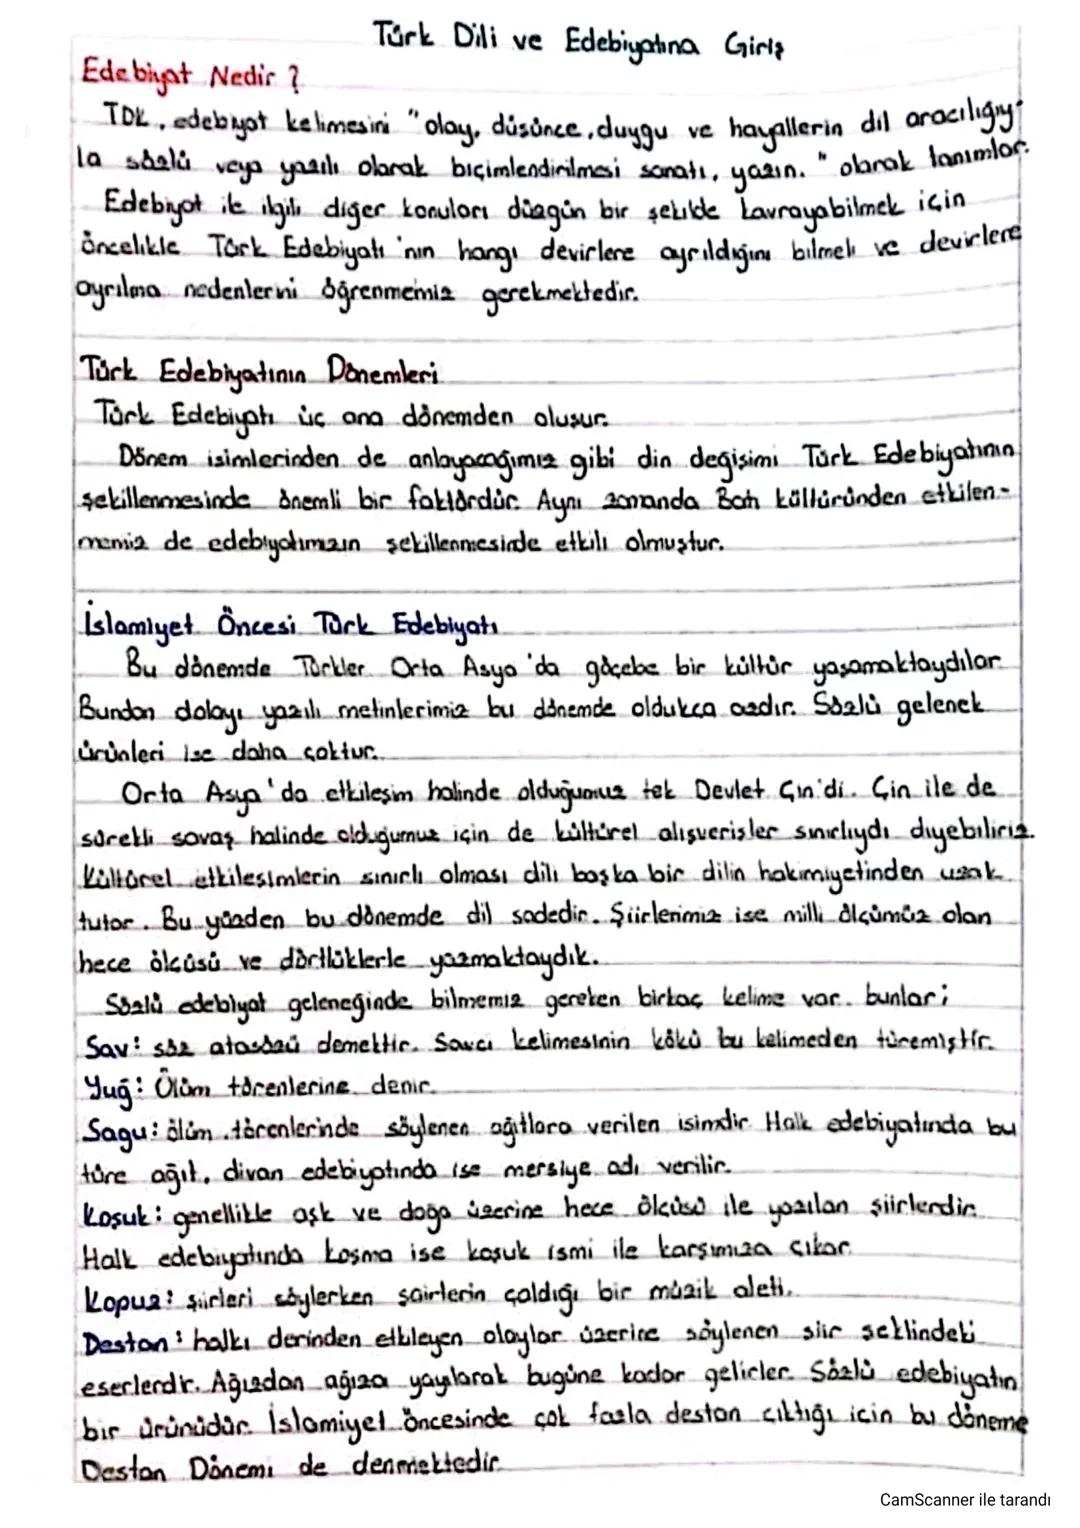 Türk Dili ve Edebiyatına Giriş
Edebiyat Nedir ?
TDK, edebiyat kelimesini "olay, düşünce, duygu ve hayallerin dil aracılığıy-
la sözlü veya yazılı olarak biçimlendirilmesi sanatı, yazın." olarak tanımlar.
Edebiyat ile ilgili diğer konuları düzgün bir şekilde kavrayabilmek için
öncelikle Türk Edebiyatı'nın hangi devirlere ayrıldığını bilmeli ve devirlere
ayrılma nedenlerini öğrenmemiz gerekmektedir.
Türk Edebiyatının Dönemleri
Türk Edebiyatı üç ana dönemden oluşur.
Dönem isimlerinden de anlayacağımız gibi din değişimi Türk Edebiyatının
şekillenmesinde önemli bir faktördür. Aynı zamanda Batı kültüründen etkilen-
memiz de edebiyatımızın şekillenmesinde etkili olmuştur.
İslamiyet Öncesi Türk Edebiyatı
Bu dönemde Türkler Orta Asya'da göçebe bir kültür yaşamaktaydılar
Bundan dolayı yazılı metinlerimiz bu dönemde oldukca azdır. Sözlü gelenek
ürünleri ise daha çoktur.
Orta Asya'da etkileşim halinde olduğumuz tek Devlet Çin'di. Çin ile de
sürekli savaş halinde olduğumuz için de kültürel alışverişler sınırlıydı diyebiliriz.
Kültürel etkileşimlerin sınırlı olması dili başka bir dilin hakimiyetinden uzak
tutar. Bu yüzden bu dönemde dil sadedir. Şiirlerimiz ise milli ölçümüz olan
hece ölçüsü ve dörtlüklerle yazmaktaydık.
Sözlü edebiyat geleneğinde bilmemiz gereken birkaç kelime var. bunlar;
Sav: söz atasözü demektir. Savcı kelimesinin kökü bu kelimeden türemiştir.
Yuğ: Ölüm törenlerine denir.
Sagu: ölüm törenlerinde söylenen ağıtlara verilen isimdir. Halk edebiyatında bu
türe ağıt, divan edebiyatında ise mersiye adı verilir.
Koşuk: genellikle aşk ve doğa üzerine hece ölçüsü ile yazılan şiirlerdir.
Halk edebiyatında koşma ise koşuk ismi ile karşımıza çıkar.
Kopuz: şiirleri söylerken şairlerin çaldığı bir müzik aleti.
Destan: halkı derinden etkileyen olaylar üzerine söylenen şiir şeklindeki
eserlerdir. Ağızdan ağıza yayılarak bugüne kadar gelirler. Sözlü edebiyatın
bir ürünüdür. İslamiyet öncesinde çok fazla destan çıktığı için bu döneme
Destan Dönemi de denmektedir.
CamScanner ile tarandı